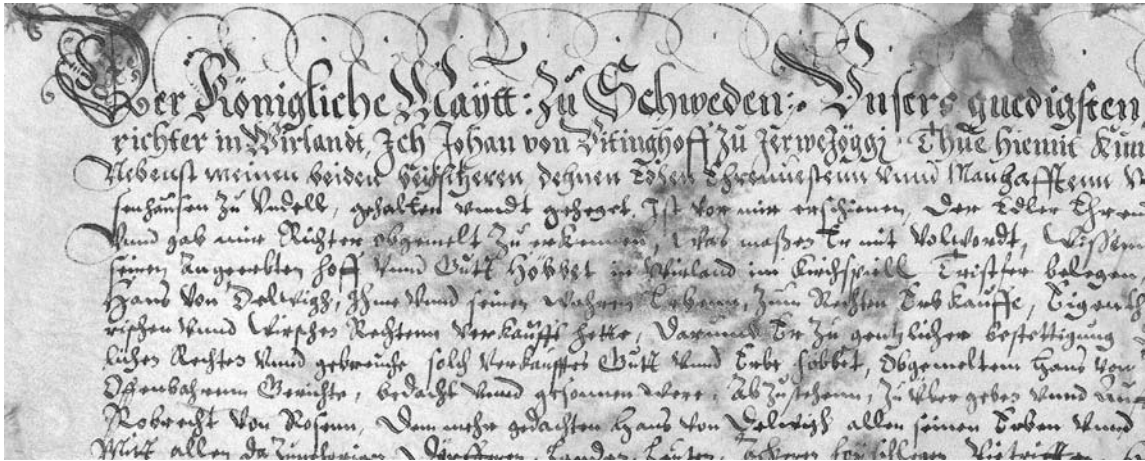 Der Königliche Maÿtt: Zu Schweden: Unsers gnedigsten
richter in Wirlandt, Ich Johan von Vitinghoff zu Zerwezöggi Thue hiemit Kun
Nebenst meinen beiden beisitzeren dehnen Edlen Ehrenuestenn Vnnd Manhafftenn
senhausen zu Vndell, gehalten vnndt geheget, Ist vor mir erschienen, Der Edler Ehren
Vnnd gab mir Richter obgemelt zu erkennen, Was maßen Er mit Volwordt, Wissen
seinen angeerbten hoff Vnnd Gutt Höbbet in Wirland im Kirchspiell Cristfer belegen
Hans von Delwigh, Ihme Vnnd seinen Wahren Erbenn, Zum Rechten Erb Kauffe, Eigenth
rischen Vnnd Wirschen Rechtenn Verkaufft hette, Darumb Er zu gentzlicher bestettigung
lichen Rechten Vnnd gebreuche solch Verkaufftes Gutt Vnnd Erbe Höbbet, Obgemeltem Hans Von
Offenbahrenn Gerichte, bedacht Vnnd gesonnen Were, Abzustehenn, Zu Übergeben Vnnd
Robrecht Von Rosenn, Dem mehr gedachten Hans von Delwigh allen seinen Erben Vnnd
Mitt allen da Zuuehörigen Dörfferen, Landen, Leuten, Ackeren